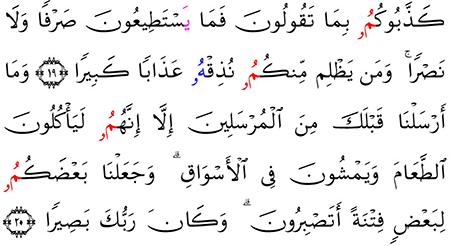 كَذَّبُوكُمُۥ بِمَا تَقُولُونَ فَمَا يَسْتَطِيعُونَ صَرْفًا وَلَا
نَصْرًا ۚ وَمَن يَظْلِم مِّنكُمُۥ نُذِقْهُۥ عَذَابًا كَبِيرًا ﴿١٩﴾ وَمَا
أَرْسَلْنَا قَبْلَكَ مِنَ ٱلْمُرْسَلِينَ إِلَّا إِنَّهُمُۥ لَيَأْكُلُونَ
ٱلطَّعَامَ وَيَمْشُونَ فِى ٱلْأَسْوَاقِ ۗ وَجَعَلْنَا بَعْضَكُمُۥ
لِبَعْضٍ فِتْنَةً أَتَصْبِرُونَ ۗ وَكَانَ رَبُّكَ بَصِيرًا ﴿٢٠﴾